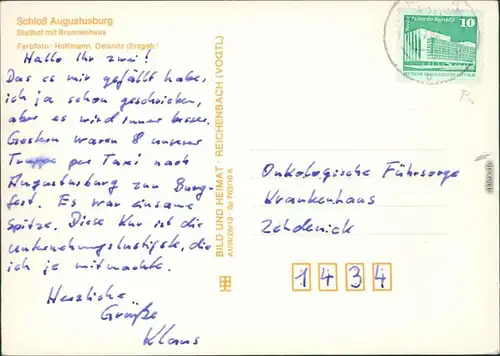 Schloß Augustusburg
Stallhof mit Brunnenhaus
Farbfoto: Hoffmann, Oelsnitz (Erzgeb.)
Hallo Ihr zwei!
Das es mir gefällt habe,
ich ja schon geschrieben,
aber es wird immer besser.
Gestern waren 8 unserer
Truppe per Taxi nach
Augustusburg zum Burg-
fest. Es war einsame
Spitze. Diese Kur ist die
unternehmungslustigste, die
ich je mitmachte.
Herzliche
Grüße
Klaus
BILD UND HEIMAT · REICHENBACH (VOGTL)
10
Onkologische Fühsorge
Krankenhaus
Zehdenick
1434